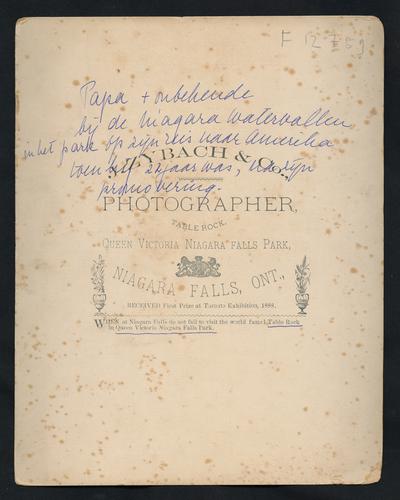 F 12
Papa + onbekende
bij de Niagara watervallen
in het park op zijn reis naar Amerika
toen hij 22 jaar was, na zijn
promovering.
YBACH & Co.,
PHOTOGRAPHER,
TABLE ROCK,
QUEEN VICTORIA NIAGARA FALLS PARK,
NIAGARA FALLS, ONT.,
RECEIVED First Prize at Toronto Exhibition, 1888.
WHEN at Niagara Falls do not fail to visit the world famed Table Rock
in Queen Victoria Niagara Falls Park.